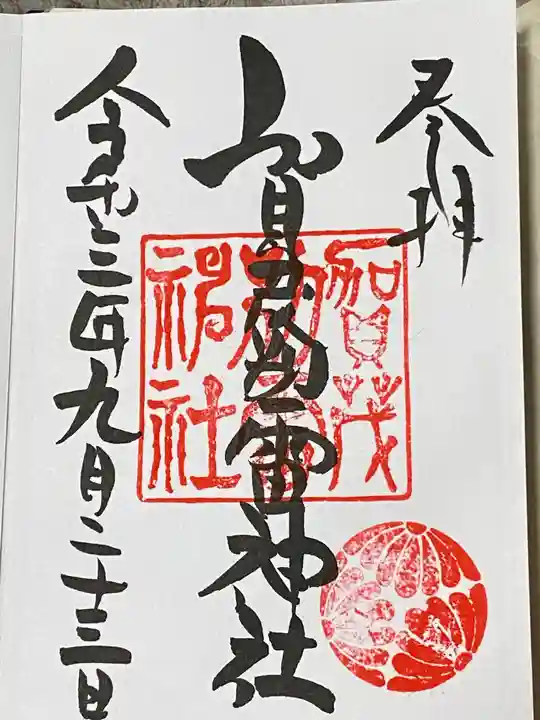 奉拝
賀茂別雷神社
令和三年九月二十三日
賀茂
別雷
神社